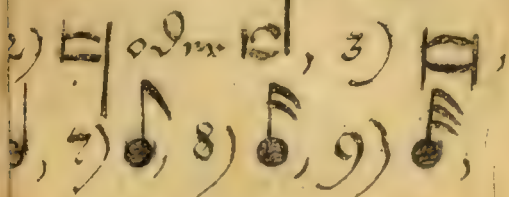 2) oder , 3) ,
, 7) , 8) , 9) ;